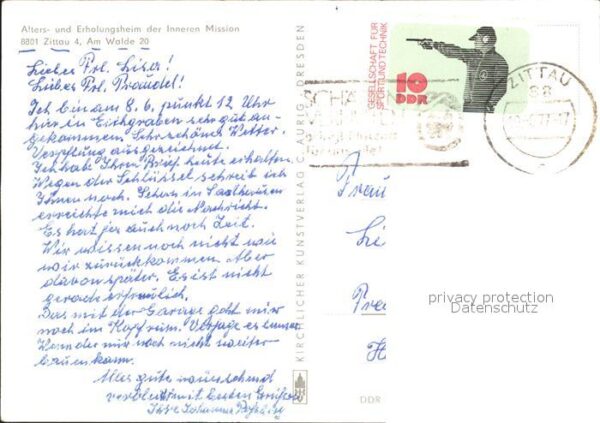 Alters- und Erholungsheim der Inneren Mission
8801 Zittau 4, Am Walde 20
Liebes Frl. Lisa!
Liebes Frl. Praudel!
Ich bin am 8. 6. punkt 12 Uhr
hier in Eichgraben sehr gut an-
gekommen. Sehr schönes Wetter.
Verpflegung ausgezeichnet.
Ich hab Ihren Brief heute erhalten.
Wegen der Schlüssel schreib ich
Ihnen noch. Schon in
erreichte mich die Nachricht.
Es hat ja auch noch Zeit.
Wir wissen noch nicht wie
wir zurückkommen. Aber
davon später. Es ist nicht
gerade erfreulich.
Das mit der Garage geht mir
noch im Kopf rum.
Wenn der mir noch nicht weiter-
bauen kann.
Alles gute wünschend
verbleibt mit besten Grüßen
Ihre Johanna
KIRCHLICHER KUNSTVERLAG C. AURIG, DRESDEN
GESELLSCHAFT FÜR
SPORT UND TECHNIK
10
DDR
ZITTAU
88
Frau
Li
privacy protection
Datenschutz
H
DDR